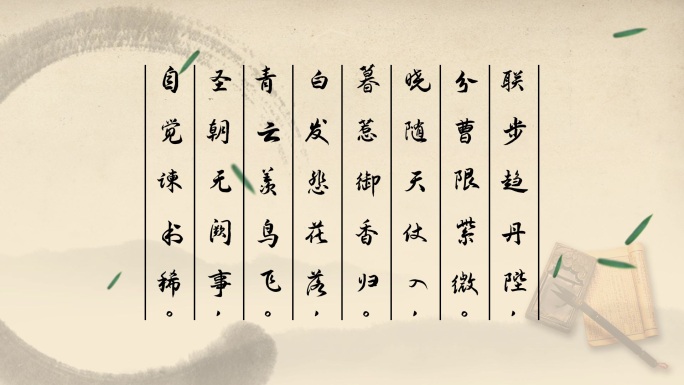 联步趋丹陛，
分曹限紫微。
晓随天仗入，
暮惹御香归。
白发悲花落，
青云羡鸟飞。
圣朝无阙事，
自觉谏书稀。